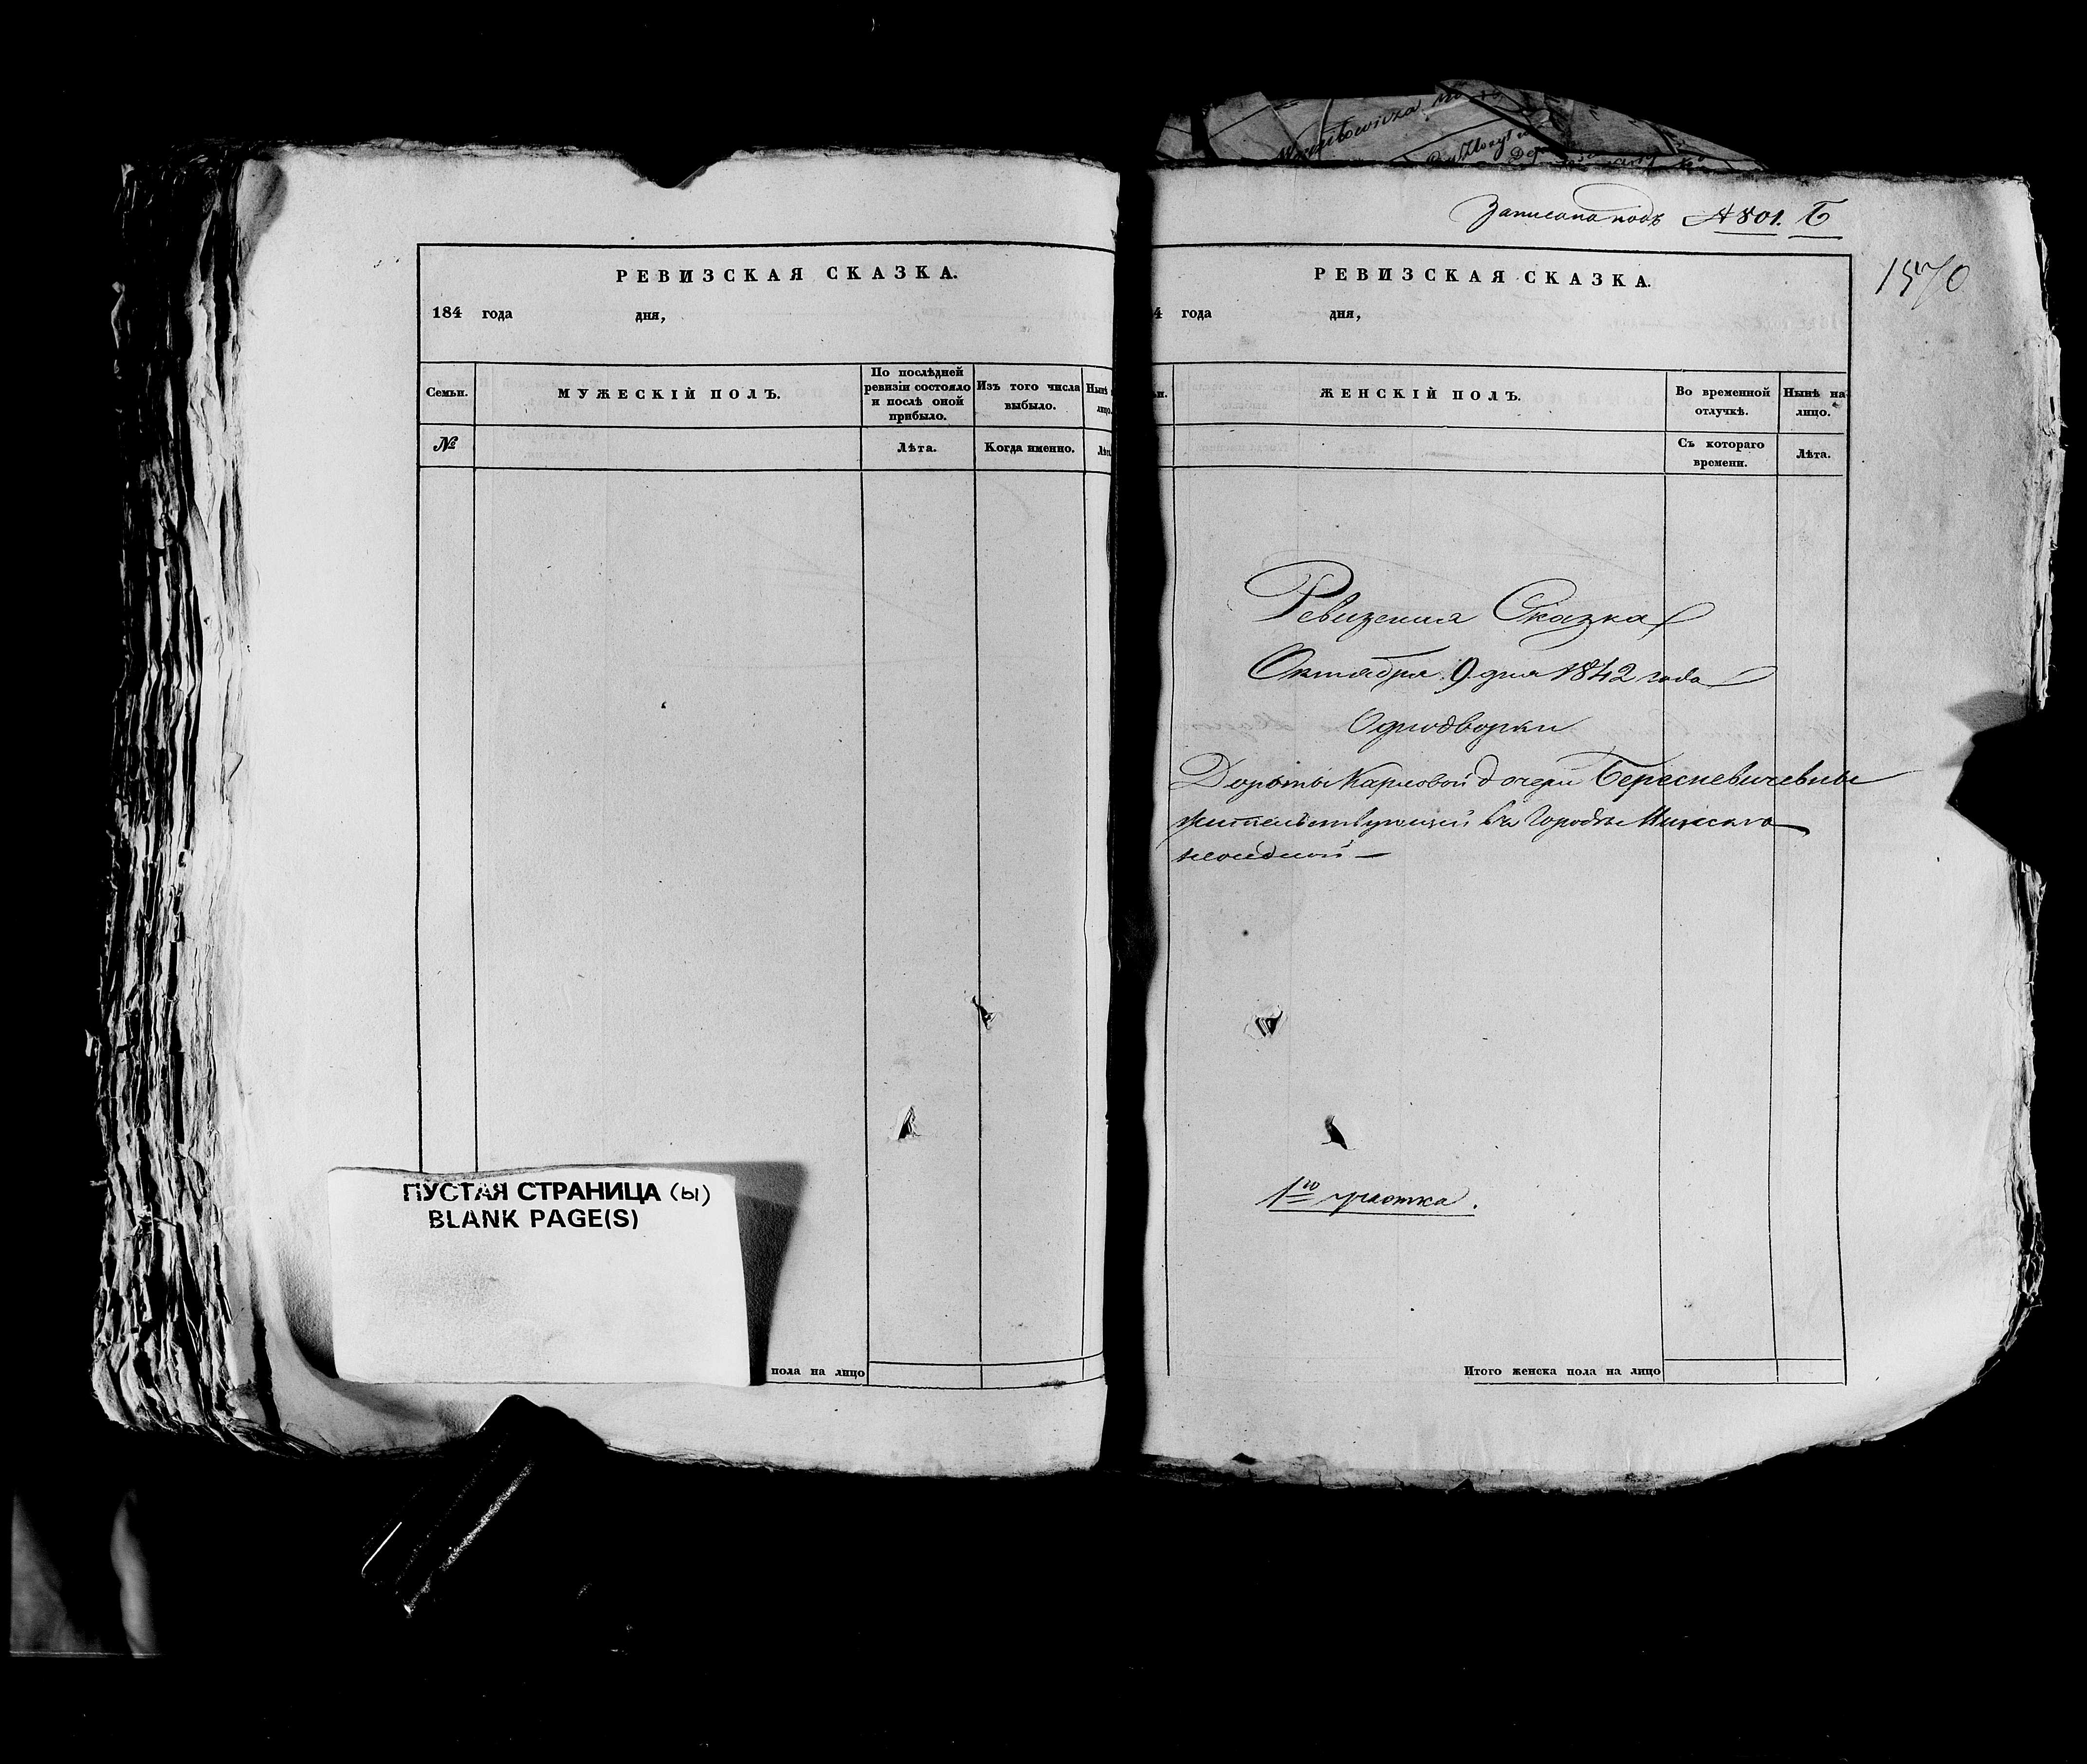 РЕВИЗСКАЯ СКАЗКА.
184 года дня,
Семьи. МУЖЕСКІЙ ПОЛЪ. По послѣдней ревизіи состояло и послѣ оной прибыло. Изъ того числа выбыло. Нынѣ лицо.
№ Лѣта. Когда именно. Лѣта
пола на лицо
ПУСТАЯ СТРАНИЦА (ы)
BLANK PAGE(S)
Записана подъ № 801. Б
1570
РЕВИЗСКАЯ СКАЗКА.
4 года дня,
ЖЕНСКІЙ ПОЛЪ. Во временной отлучкѣ. Нынѣ на лицо.
Съ котораго времени. Лѣта.
Ревизская Сказка
Октября 9 дня 1842 года
Однодворки
Дороты Карловой дочери Бересневичевны
жительствующей въ Городѣ Минскѣ
1го участка.
Итого женска пола на лицо